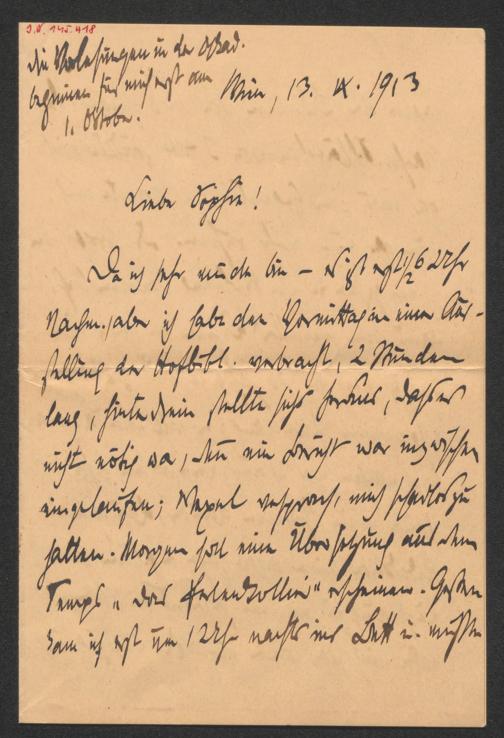 J.N. 145.418
die Vorlesungen in der Akad.
beginnen für mich erst am
1. Oktober.
Wien, 13. IX. 1913
Liebe Sophie!
Da ich sehr müde bin – es ist erst ½ 6 Uhr
Nachm., aber ich habe den Vormittag in einer Aus-
stellung der Hofbibl. verbracht, 2 Stunden
lang, hinterdrein stellte sichs heraus, dass es
nicht nötig war, denn ein Bericht war inzwischen
eingelaufen; versprach, mich schadlos zu
halten. Morgen soll eine Übersetzung aus dem
Temps „das " erscheinen. Gestern
kam ich erst um 12 Uhr nachts ins Bett u. musste